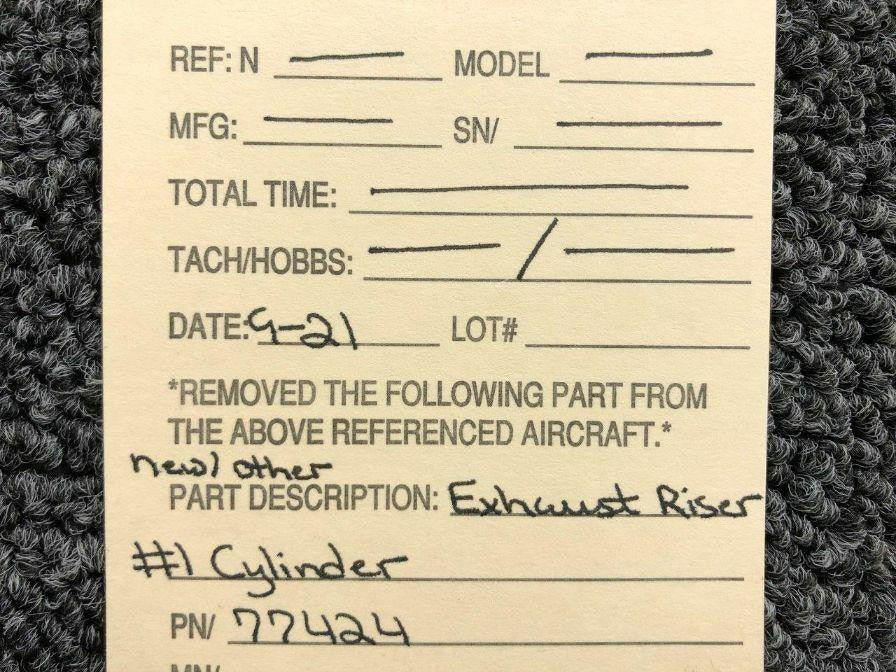 REF: N — MODEL —
MFG: — SN/ —
TOTAL TIME: —
TACH/HOBBS: — / —
DATE: 9-21 LOT#
*REMOVED THE FOLLOWING PART FROM
THE ABOVE REFERENCED AIRCRAFT.*
new/other
PART DESCRIPTION: Exhaust Riser
#1 Cylinder
PN/ 77424
MN/